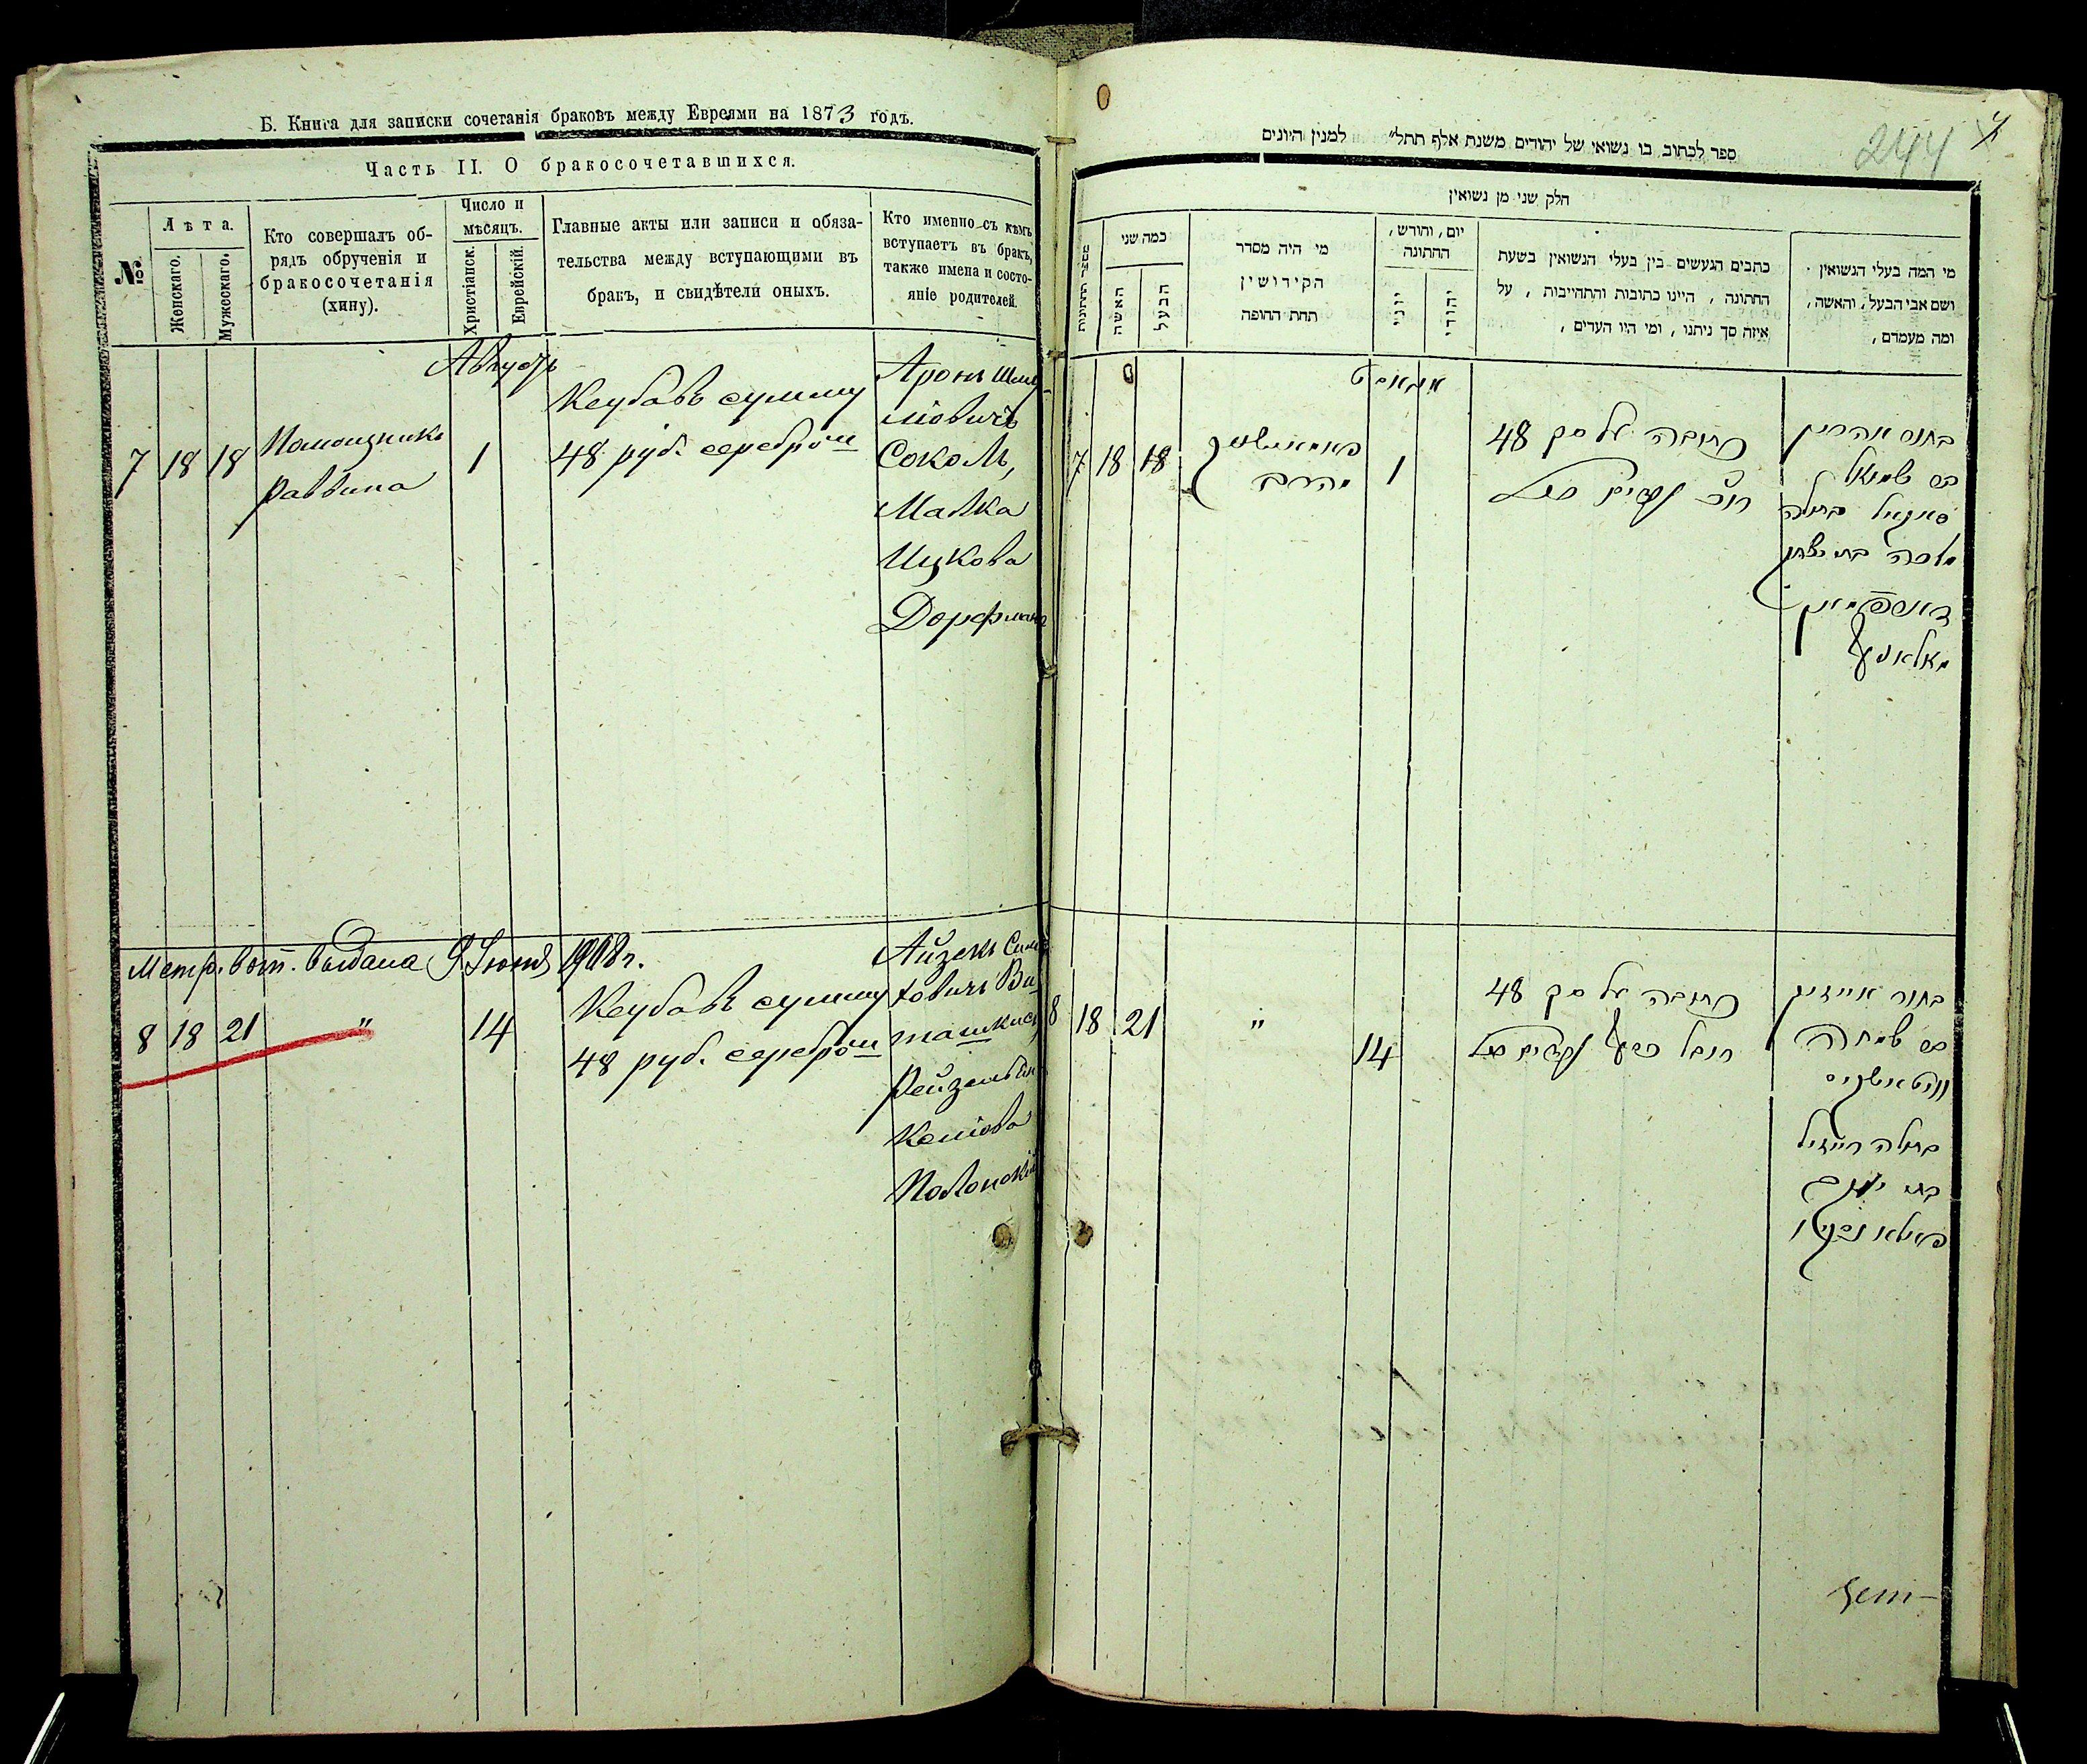 Б. Книга для записки сочетанія браковъ между Евреями на 1873 годъ.
Часть II. О бракосочетавшихся.
№
Лѣта.
Женскаго.
Мужескаго.
Кто совершалъ об-
рядъ обрученія и
бракосочетанія
(хину).
Число и
мѣсяцъ.
Христіанск.
Еврейскій.
Главные акты или записи и обяза-
тельства между вступающими въ
бракъ, и свидѣтели оныхъ.
Кто именно съ кѣмъ
вступаетъ въ бракъ,
также имена и состо-
яніе родителей.
Августъ
7 18 18
Помощникъ
раввина
1
Кеубавъ сумму
48 руб. серебром
Аронъ Шму
ліовичъ
Соколъ,
Малка
Ицкова
Дорфманъ
Метр. вып. выдана 9 Іюня 1908 г.
8 18 21 " 14
Кеубавъ сумму
48 руб. серебром
Айзекъ Сим
ховичъ Ви
ташкисъ
Рейзель
Полонскій
ספר לכתוב בו נשואי של יהודים משנת אלף תתל״ למנין היונים
244
חלק שני מן נשואין
מספר החתונות
כמה שני
האשה
הבעל
מי היה מסדר
הקידושין
תחת החופה
יום, וחודש,
החתונה
יוני
יהודי
כתבים הנעשים בין בעלי הנשואין בשעת
החתונה, היינו כתובות והתחייבות, על
איזה סך ניתנו, ומי היו העדים,
מי המה בעלי הנשואין
ושם אבי הבעל, והאשה,
ומה מעמדם,
אווגוסט
7 18 18
1
כתובה על סך 48
בחור אהרן
בן שמואל
סאקאל בתולה
מלכה בת יצחק
דארפמאן
8 18 21 " 14
כתובה על סך 48
בחור אייזיק
בן שמחה
וויטאשקיס
בתולה רייזיל
בת יעקב
פאלאנסקי